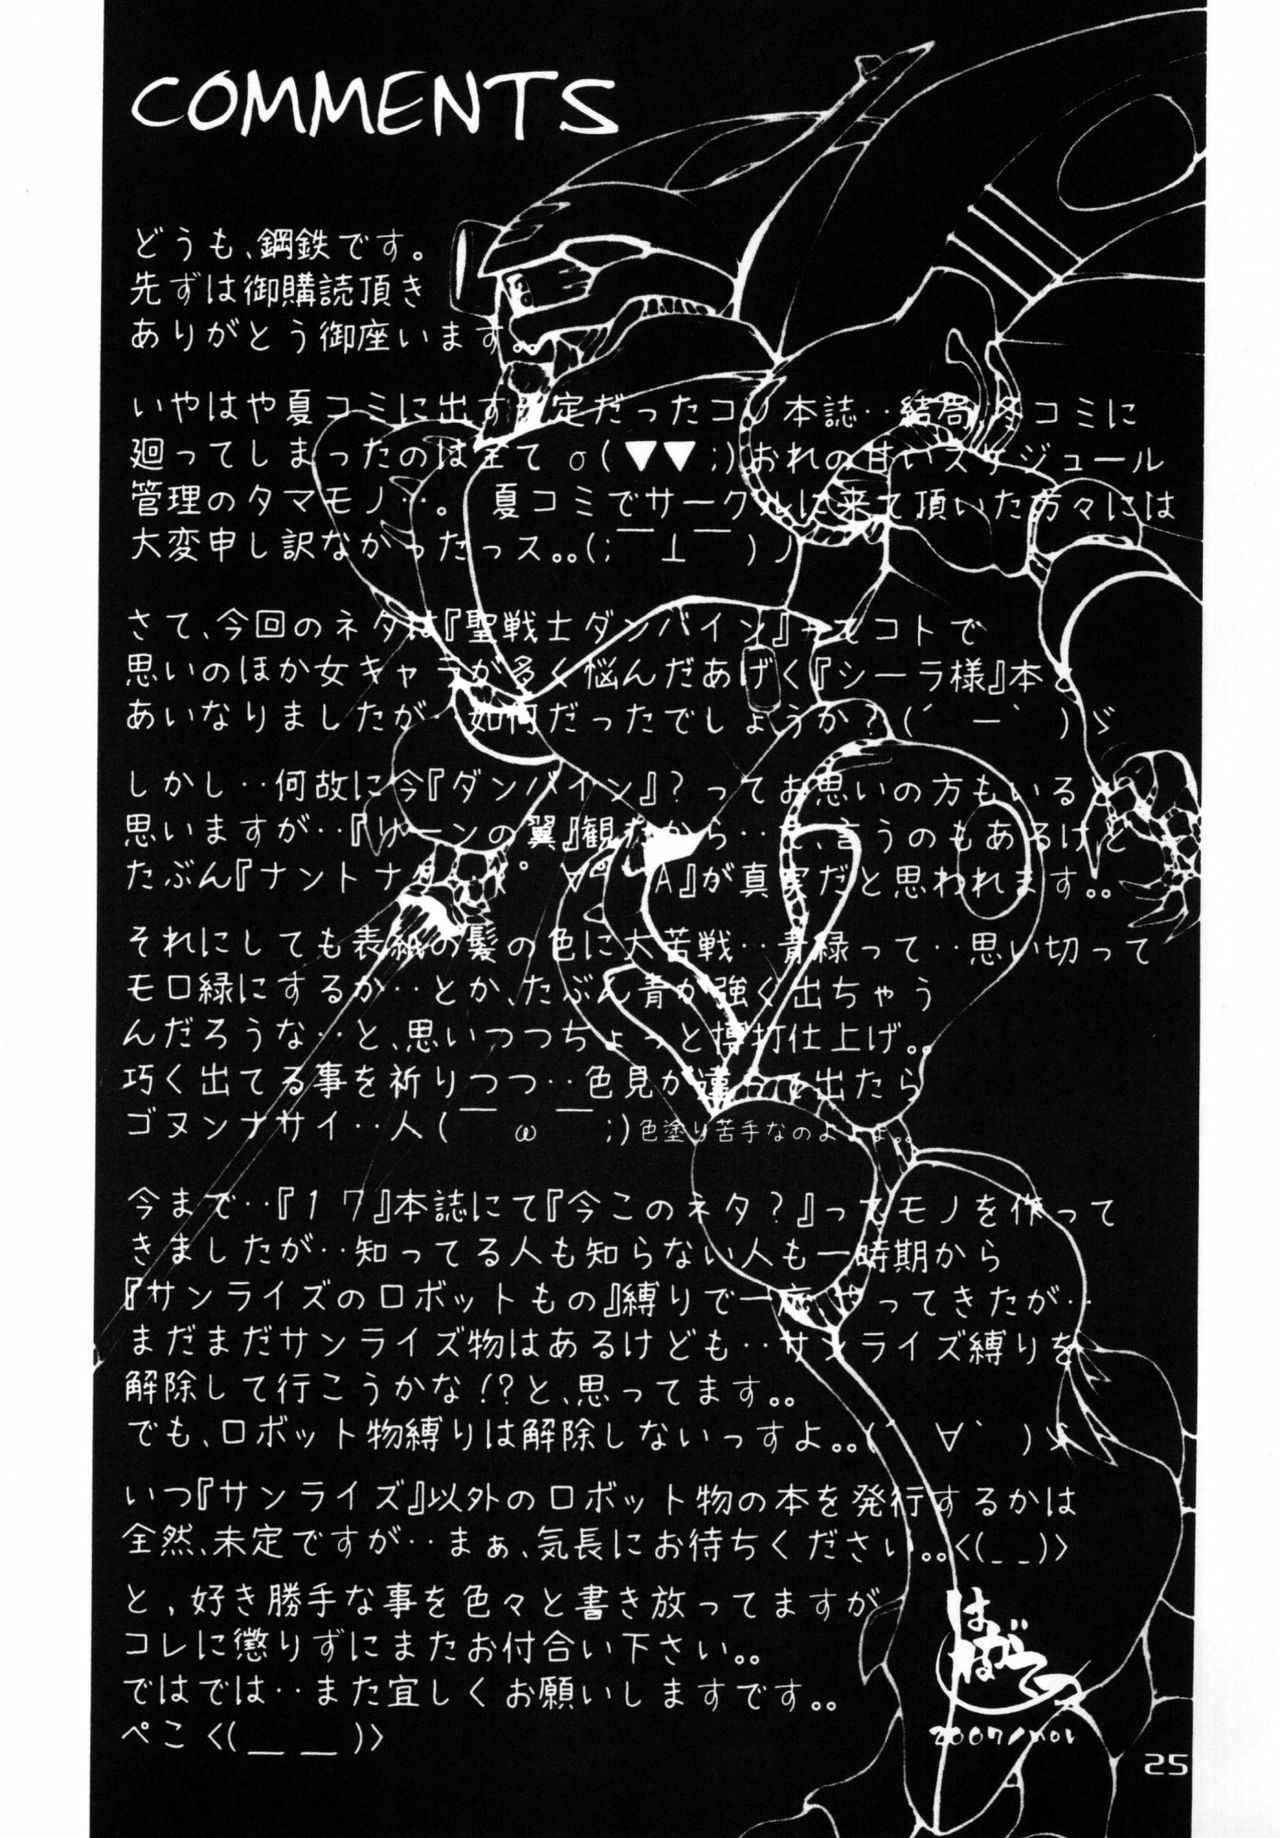 COMMENTS
どうも、鋼鉄です。
先ずは御購読頂き
ありがとう御座います。
いやはや夏コミに出す予定だったコノ本誌‥結局、冬コミに
廻ってしまったのは全て σ(▼▼;)おれの甘いスケジュール
管理のタマモノ‥。 夏コミでサークルに来て頂いた方々には
大変申し訳なかったっス｡｡(;￣⊥￣)ﾉ
さて、今回のネタは『聖戦士ダンバイン』ってコトで
思いのほか女キャラが多く悩んだあげく『シーラ様』本と
あいなりましたが、如何だったでしょうか?(´ー｀)ゞ
しかし‥何故に今『ダンバイン』?ってお思いの方もいると
思いますが‥『リーンの翼』観たから‥と、言うのもあるけど
たぶん『ナントナク が真実だと思われます｡｡
それにしても表紙の髪の色に大苦戦‥青緑って‥思い切って
モロ緑にするか‥とか、たぶん青が強く出ちゃう
んだろうな‥と、思いつつちょっと博打仕上げ｡｡
巧く出てる事を祈りつつ‥色見が違って出たら
ゴメンナサイ‥人(￣ω￣;)色塗り苦手なのよぉ｡｡
今まで‥『17』本誌にて『今このネタ?』ってモノを作って
きましたが‥知ってる人も知らない人も一時期から
『サンライズのロボットもの』縛りで一応やってきたが‥
まだまだサンライズ物はあるけども‥サンライズ縛りを
解除して行こうかな!?と、思ってます｡｡
でも、ロボット物縛りは解除しないっすよ｡｡(´∀｀)ゞ
いつ『サンライズ』以外のロボット物の本を発行するかは
全然、未定ですが‥まぁ、気長にお待ちください｡｡<(_ _)>
と,好き勝手な事を色々と書き放ってますが
コレに懲りずにまたお付合い下さい｡｡
ではでは‥また宜しくお願いしますです｡｡
ぺこ<(＿ ＿)>
はがね
てつ
2007/nov
25